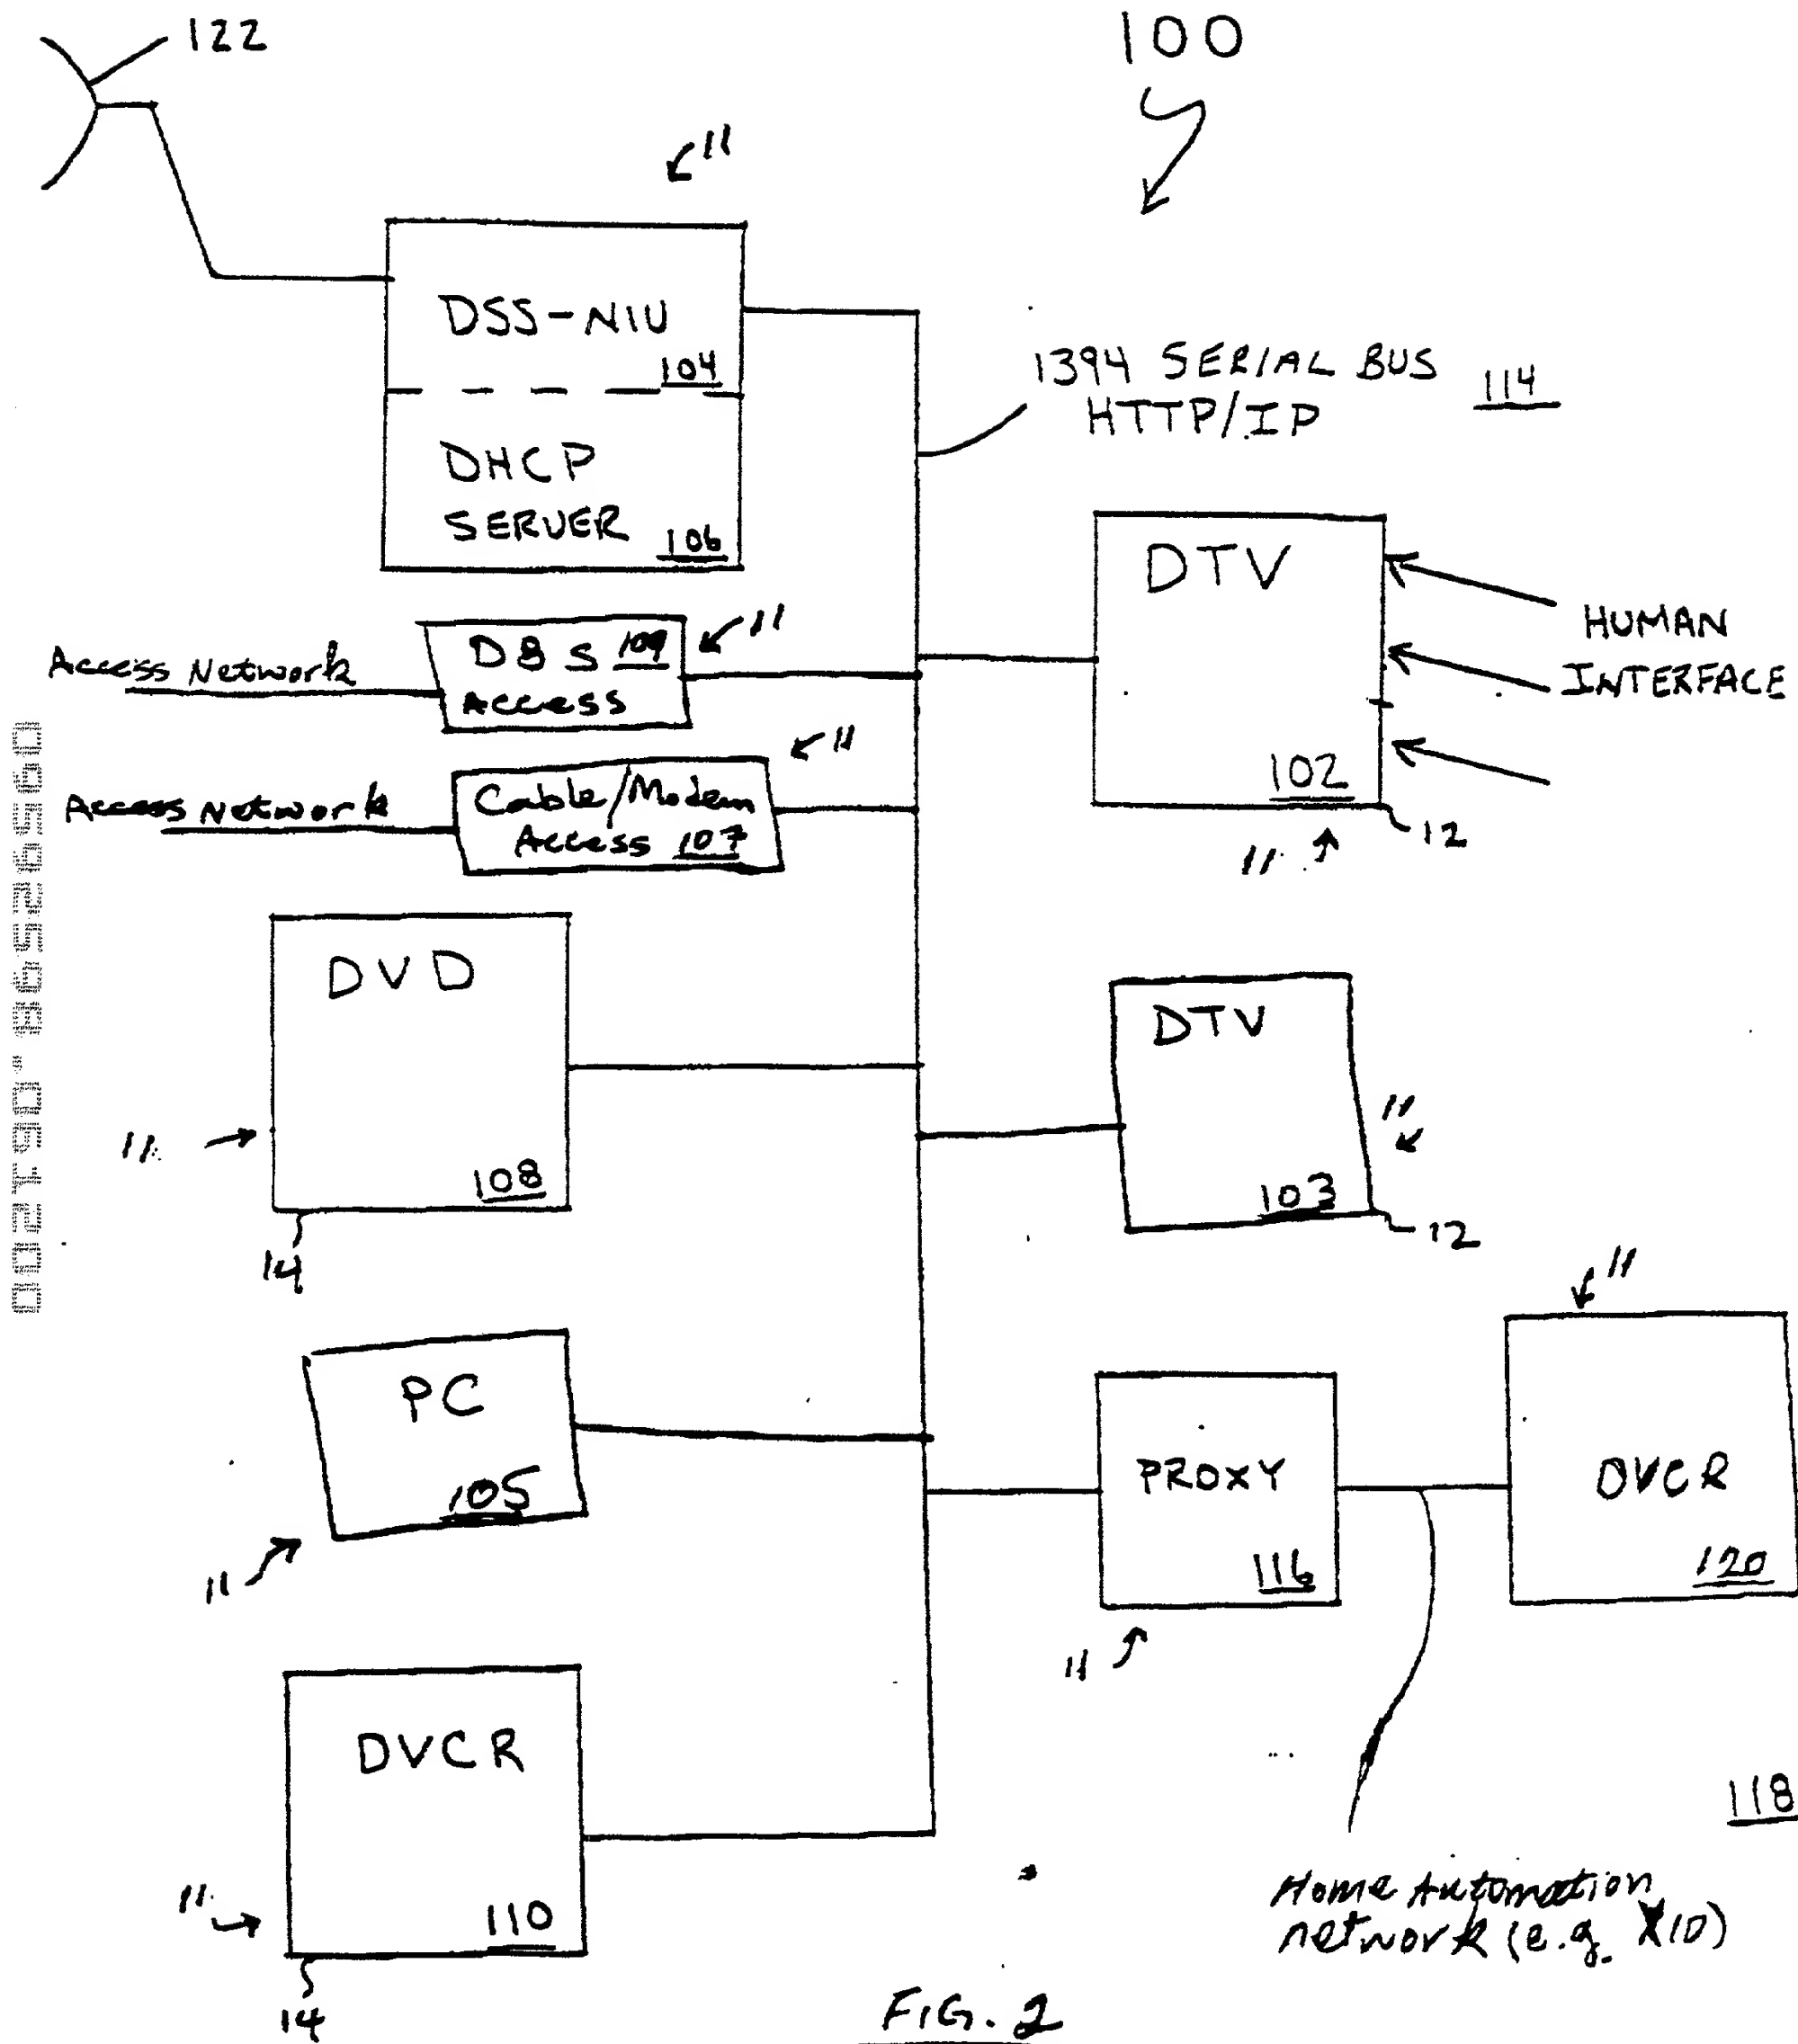 122
100
11
DSS-NIU
104
1394 SERIAL BUS
HTTP/IP
114
DHCP
SERVER
106
DTV
HUMAN
INTERFACE
102
12
11
Access Network
DBS 109
Access
11
Access Network
Cable/Modem
Access 107
11
DVD
108
11
14
DTV
103
11
12
PC
105
11
PROXY
116
11
DVCR
120
11
DVCR
110
11
14
118
Home Automation
network (e.g. X10)
FIG. 2